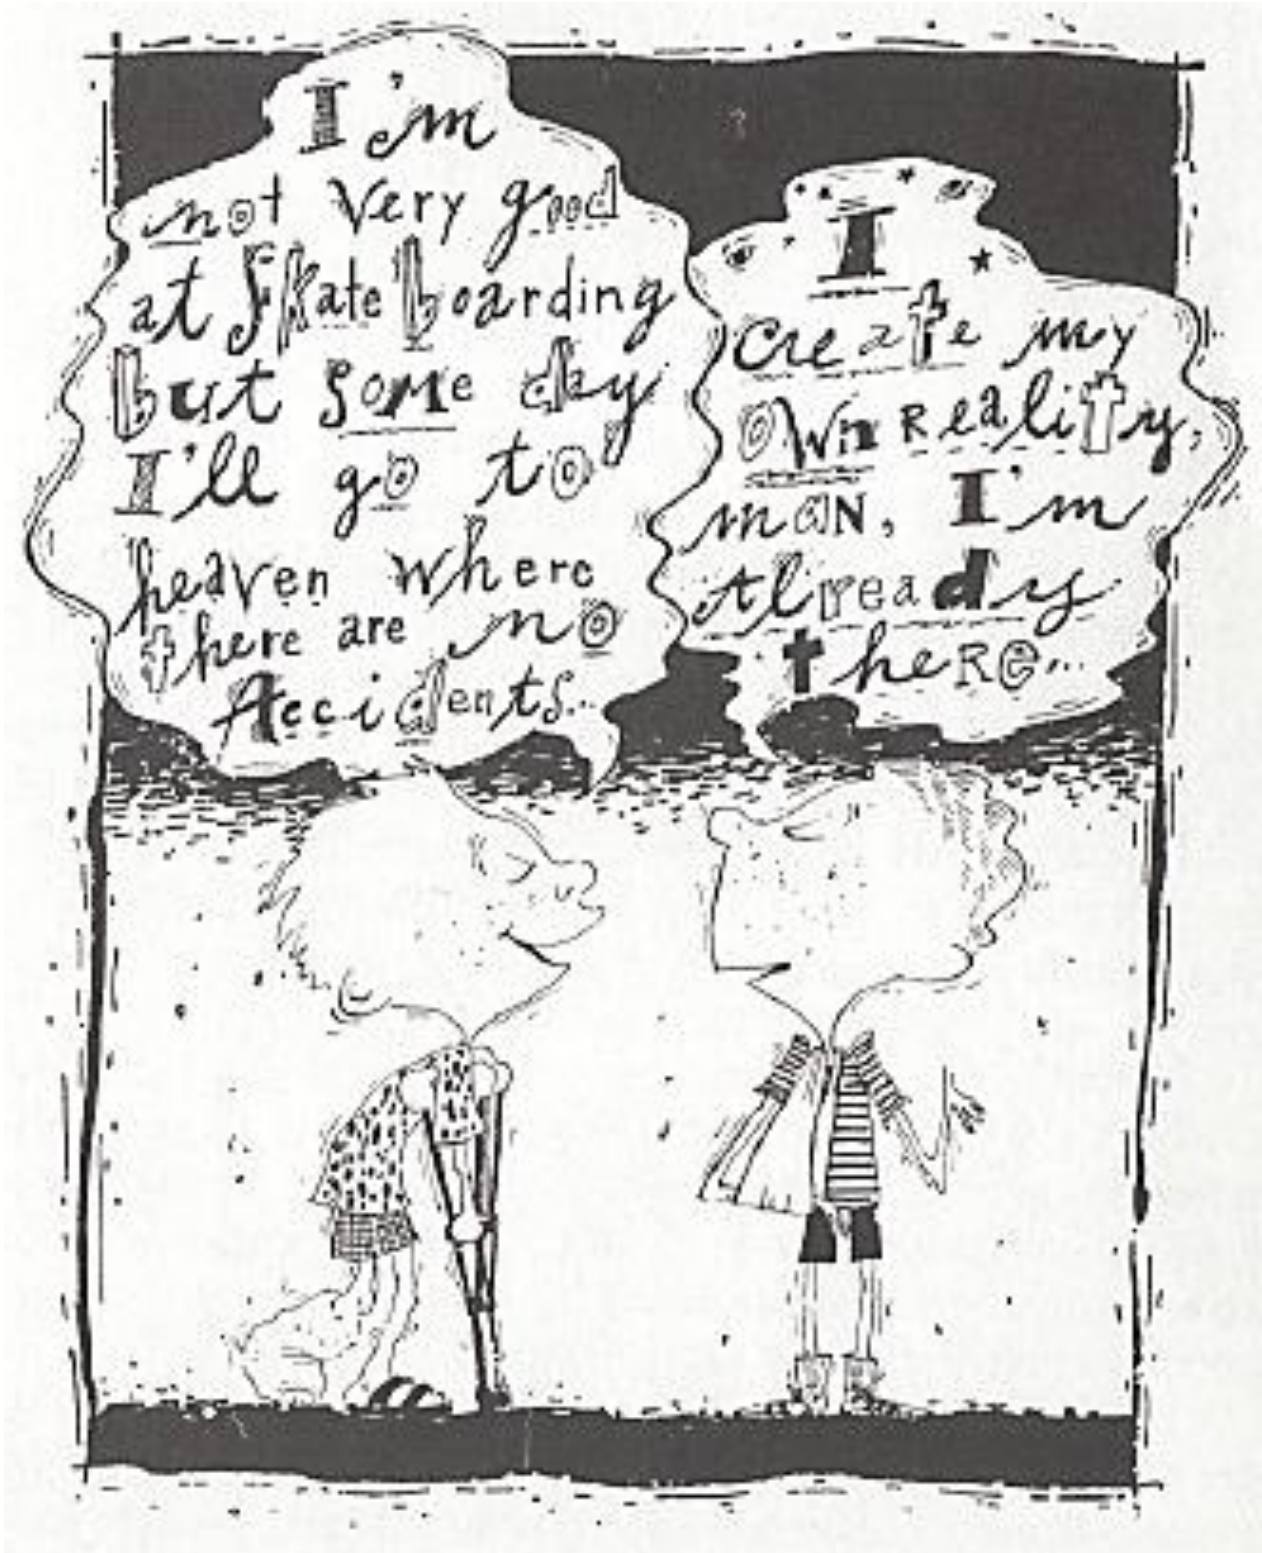 I'm
not very good
at skateboarding
but some day
I'll go to
heaven where
there are no
Accidents...
I
create my
own reality,
man, I'm
Already
there...